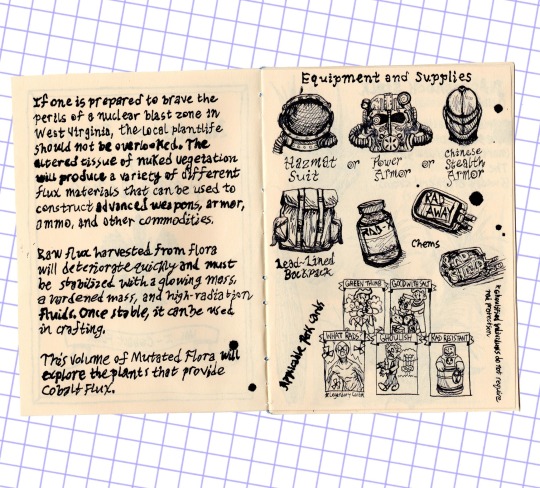 If one is prepared to brave the
perils of a nuclear blast zone in
West Virginia, the local plantlife
should not be overlooked. The
altered tissue of nuked vegetation
will produce a variety of different
flux materials that can be used to
construct advanced weapons, armor,
ammo, and other commodities.
Raw flux harvested from flora
will deteriorate quickly and must
be stabilized with a glowing mass,
a hardened mass, and high-radiation
fluids. Once stable, it can be used
in crafting.
This volume of Mutated Flora will
explore the plants that provide
Cobalt Flux.
Equipment and Supplies
Hazmat
Suit
or
Power
Armor
or
Chinese
Stealth
Armor
Lead-Lined
Backpack
RAD-X
RAD
AWAY
Chems
Applicable Perk Cards
GREEN THUMB
GOOD WITH SALT
WHAT RADS?
GHOULISH
RAD RESISTANT
*Legendary Card
*Ghoulified individuals do not require
rad protection.